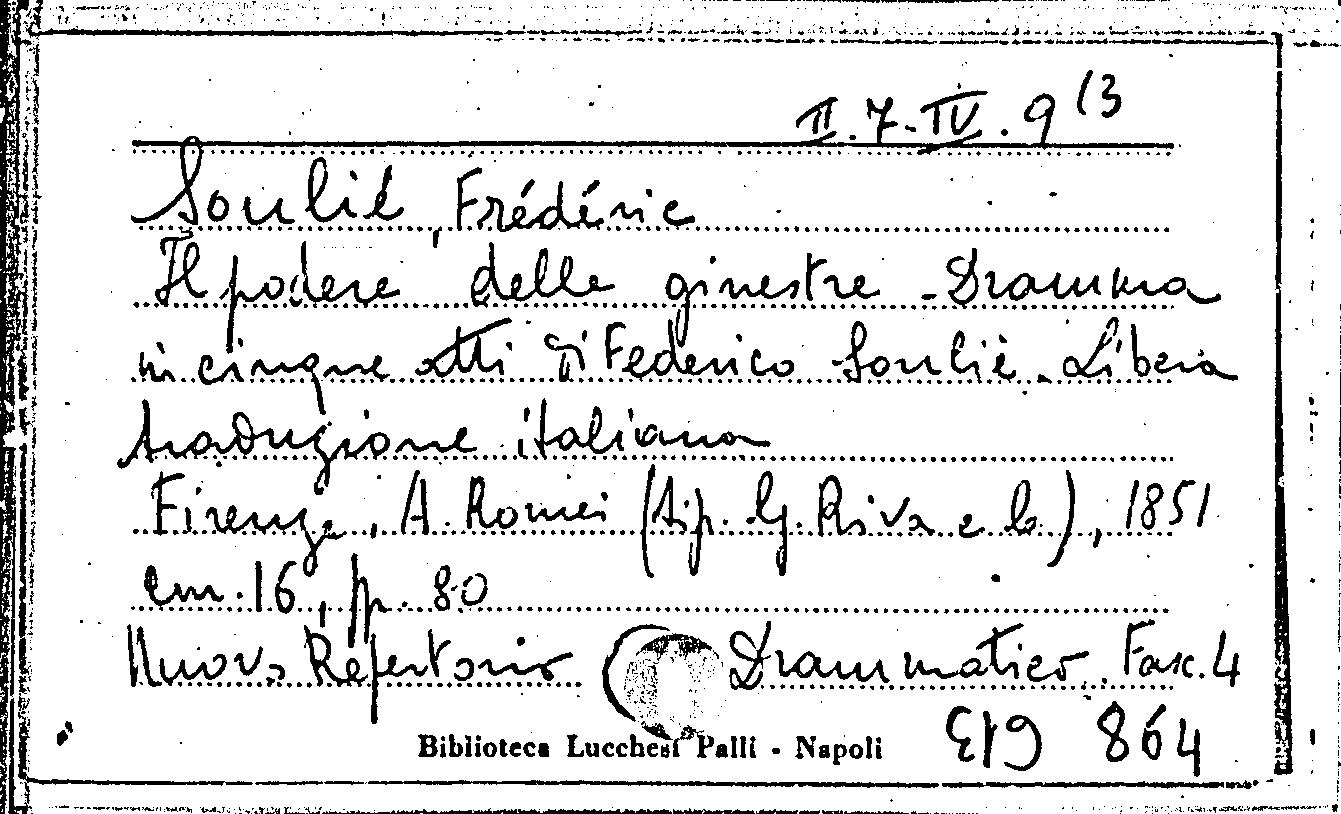 II. 7-IV. 9 (3
Soulié, Frédéric
Il podere delle ginestre - Dramma
in cinque atti di Federico Soulié. Libera
traduzione italiana
Firenze, A. Romei (tip. G. Riva e C.), 1851
cm. 16, pp. 80
Nuovo Repertorio Drammatico. Fasc. 4
864
Biblioteca Lucchesi Palli - Napoli